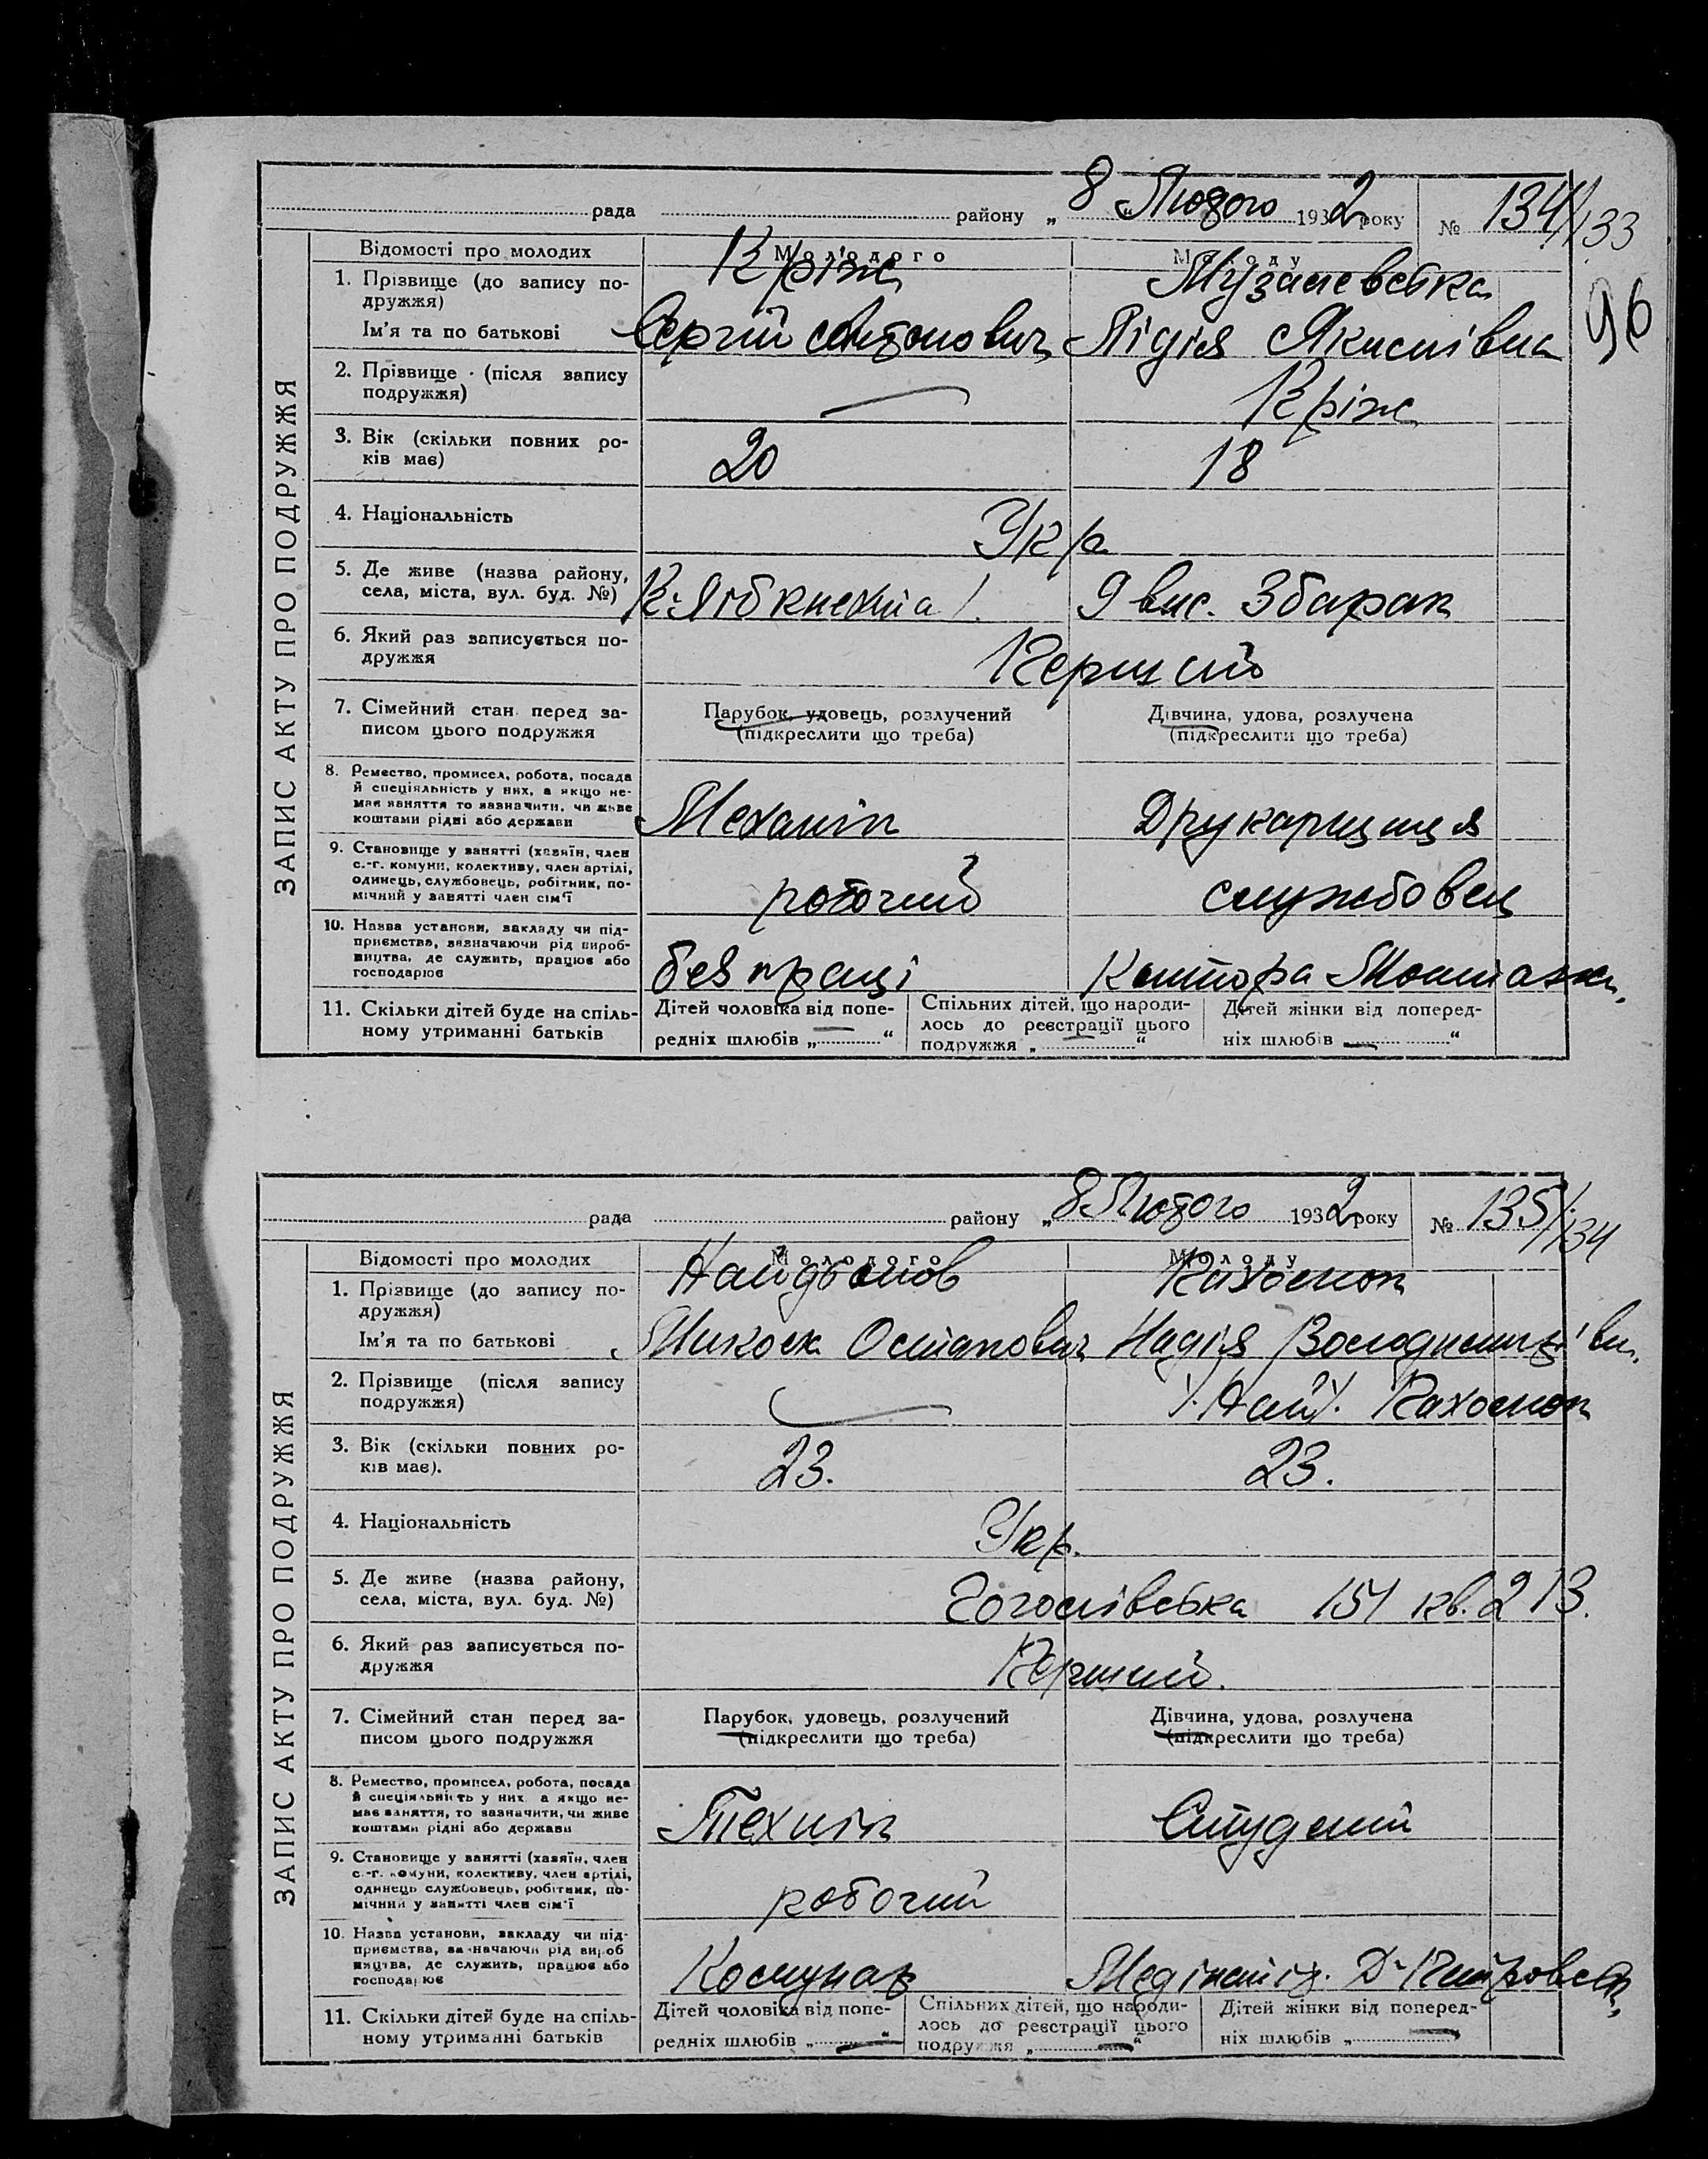 рада району „ 8 " Лютого 1932 року № 134/133
96
ЗАПИС АКТУ ПРО ПОДРУЖЖЯ
Відомості про молодих Молодого Молоду
1. Прізвище (до запису по- Кріж
дружжя)
Ім'я та по батькові Сергій Антонович Лідія Якимівна
2. Прізвище (після запису
подружжя) — Кріж
3. Вік (скільки повних ро-
ків має) 20 18
4. Національність Укр
5. Де живе (назва району,
села, міста, вул. буд. №) К. Лібкнехта 1. 9 вис. 3 барак
6. Який раз записується по-
дружжя Перший
7. Сімейний стан перед за- Парубок, удовець, розлучений Дівчина, удова, розлучена
писом цього подружжя (підкреслити що треба) (підкреслити що треба)
8. Ремество, промисел, робота, посада
й спеціяльність у них, а якщо не-
має заняття то зазначити, чи живе
коштами рідні або держави Механік Друкарщиця
9. Становище у занятті (хазяїн, член
с.-г. комуни, колективу, член артілі,
одинець, службовець, робітник, по-
мічний у занятті член сім'ї робочий службовец
10. Назва установи, закладу чи під-
приємства, зазначаючи рід вироб-
ництва, де служить, працює або
господарює без праці Контора
11. Скільки дітей буде на спіль- Дітей чоловіка від попе- Спільних дітей, що народи- Дітей жінки від поперед-
ному утриманні батьків редніх шлюбів „ — “ лось до реєстрації цього ніх шлюбів — “
подружжя „ — “
рада району „ 8 Лютого 1932 року № 135/134
ЗАПИС АКТУ ПРО ПОДРУЖЖЯ
Відомості про молодих Молодого Молоду
1. Прізвище (до запису по- Найдьонов
дружжя)
Ім'я та по батькові Микола Остапович Надія Володимирівн.
2. Прізвище (після запису
подружжя) —
3. Вік (скільки повних ро-
ків має). 23. 23.
4. Національність Укр.
5. Де живе (назва району,
села, міста, вул. буд. №) Гоголівська 151 кв. 213.
6. Який раз записується по-
дружжя Перший.
7. Сімейний стан перед за- Парубок, удовець, розлучений Дівчина, удова, розлучена
писом цього подружжя (підкреслити що треба) (підкреслити що треба)
8. Ремество, промисел, робота, посада
й спеціяльність у них а якщо не-
має заняття, то зазначити, чи живе
коштами рідні або держави Технік Студент
9. Становище у занятті (хазяїн, член
с.-г. комуни, колективу, член артілі,
одинець службовець, робітник, по-
мічний у занятті член сім'ї робочий
10. Назва установи, закладу чи під-
приємства, зазначаючи рід вироб
ництва, де служить, працює або
господарює Комунар
11. Скільки дітей буде на спіль- Дітей чоловіка від попе- Спільних дітей, що народи- Дітей жінки від поперед-
ному утриманні батьків редніх шлюбів „ — “ лось до реєстрації цього ніх шлюбів „ — “
подружжя „ — “